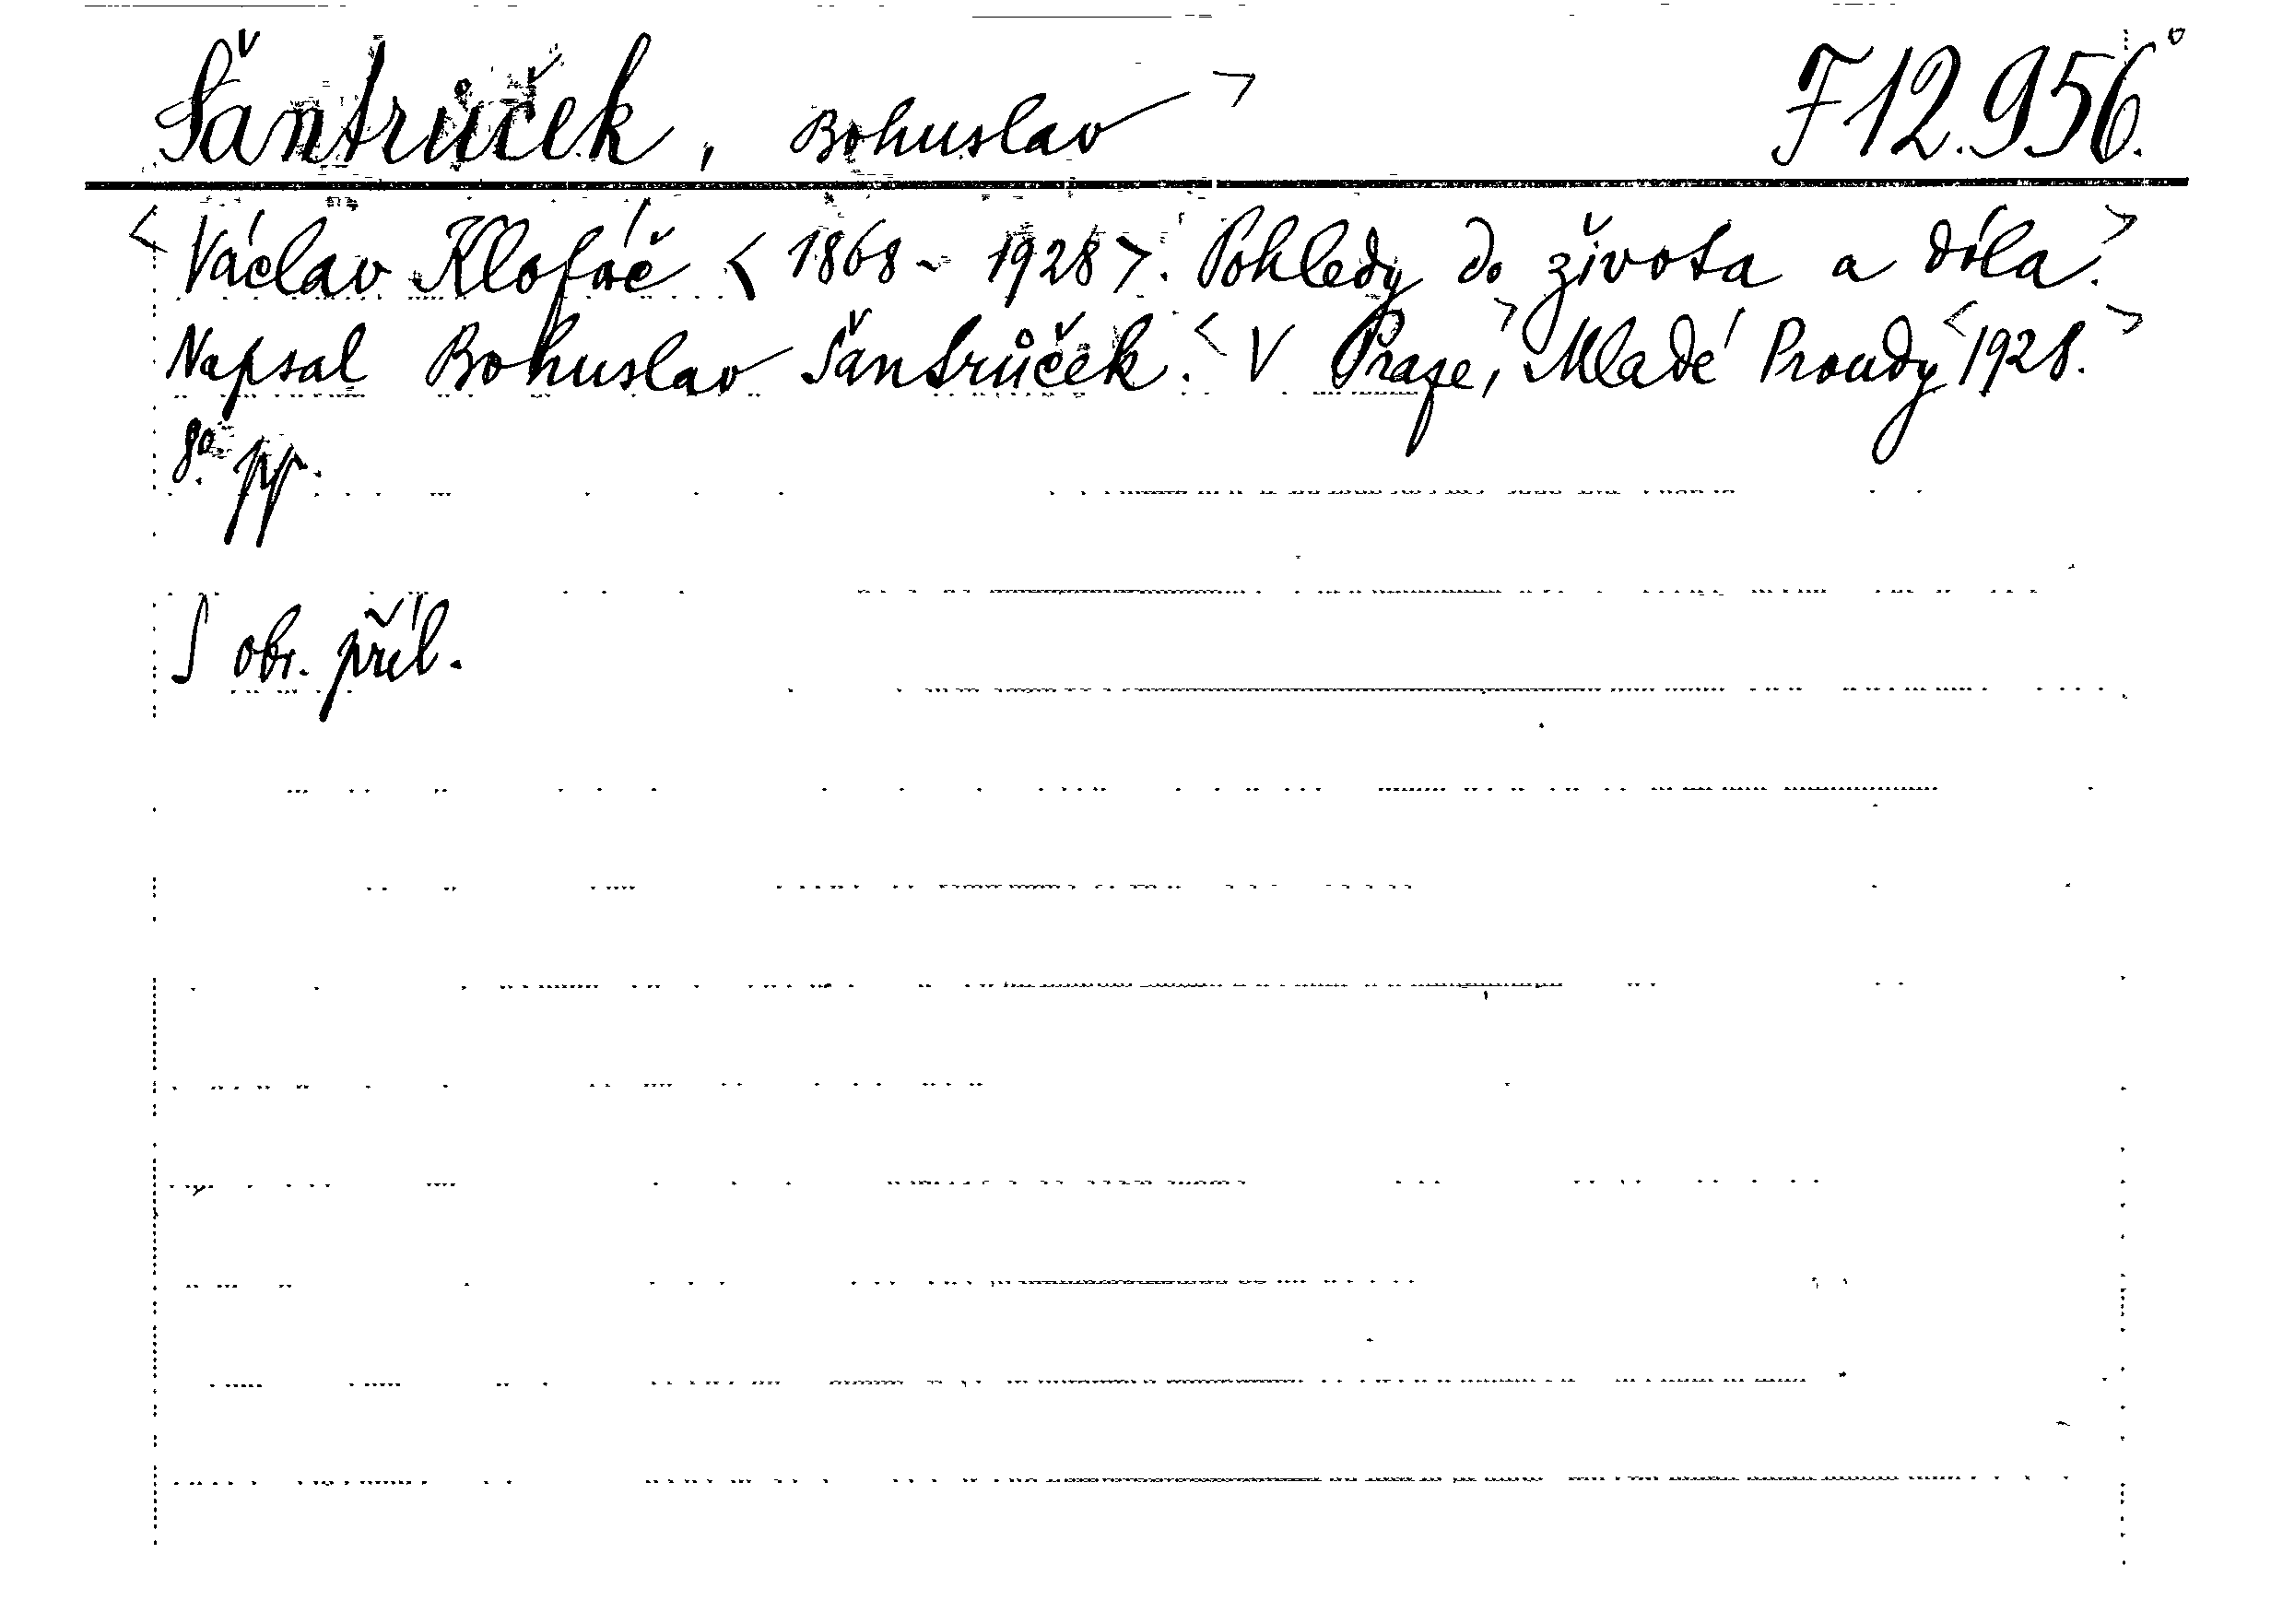 Šantrůček, Bohuslav> F 12.956.
<Václav Klofáč <1868-1928>. Pohledy do života a díla.>
Napsal Bohuslav Šantrůček. <V Praze,> Mladé Proudy <1928.>
8°. pp.
S obr. příl.